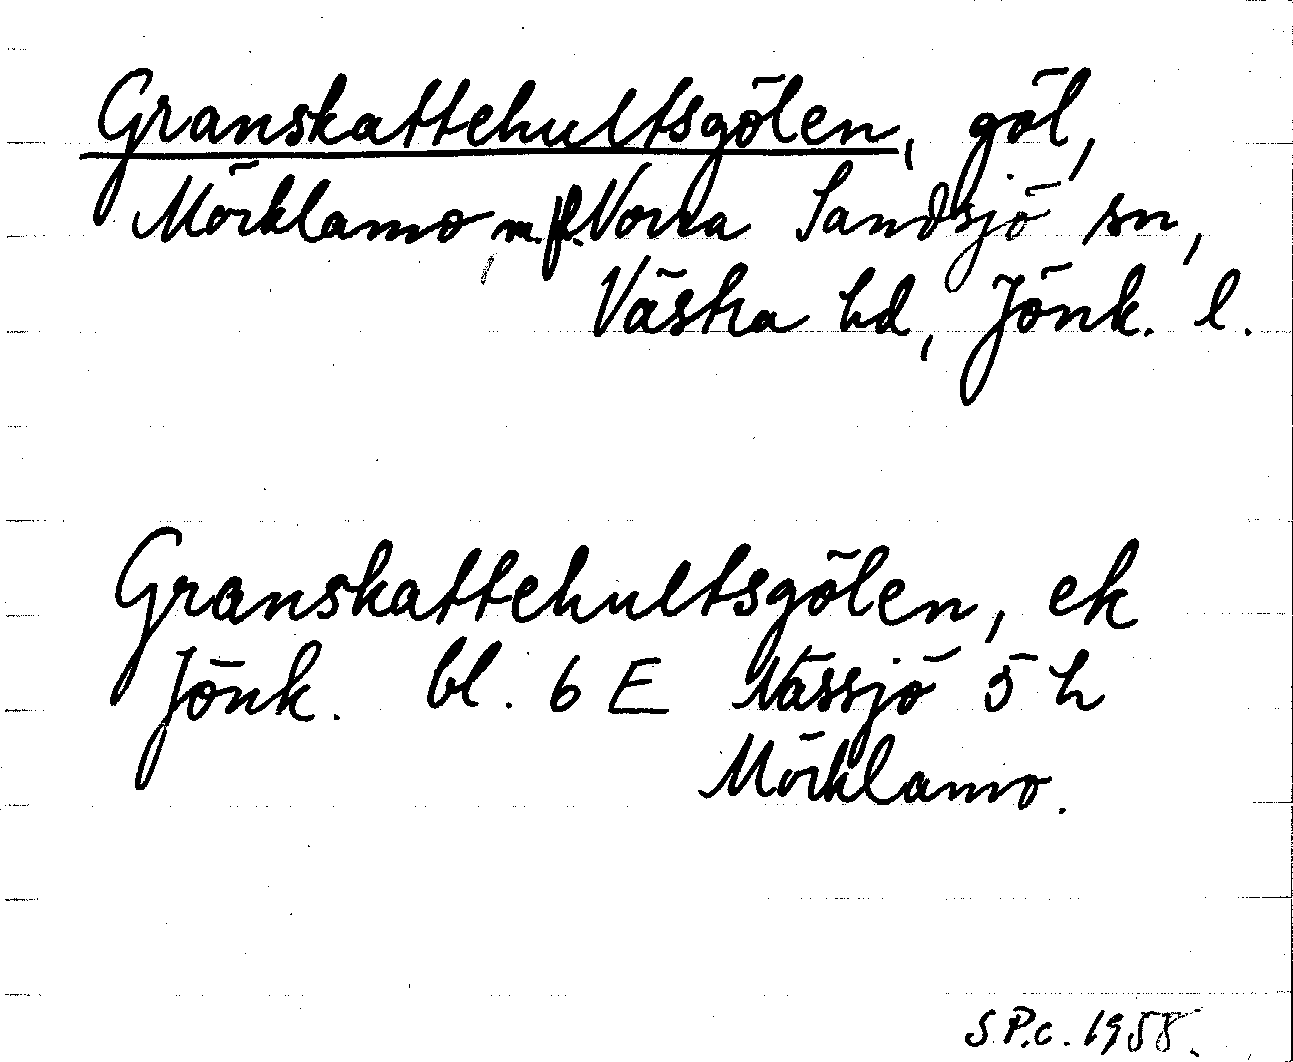 Granskattehultsgölen, göl,
Mörklamo, m.fl. Norra Sandsjö sn,
Västra hd, Jönk. l.
Granskattehultsgölen, ek
Jönk. bl. 6 E Nässjö 5 h
Mörklamo.
S.P.c. 1958.